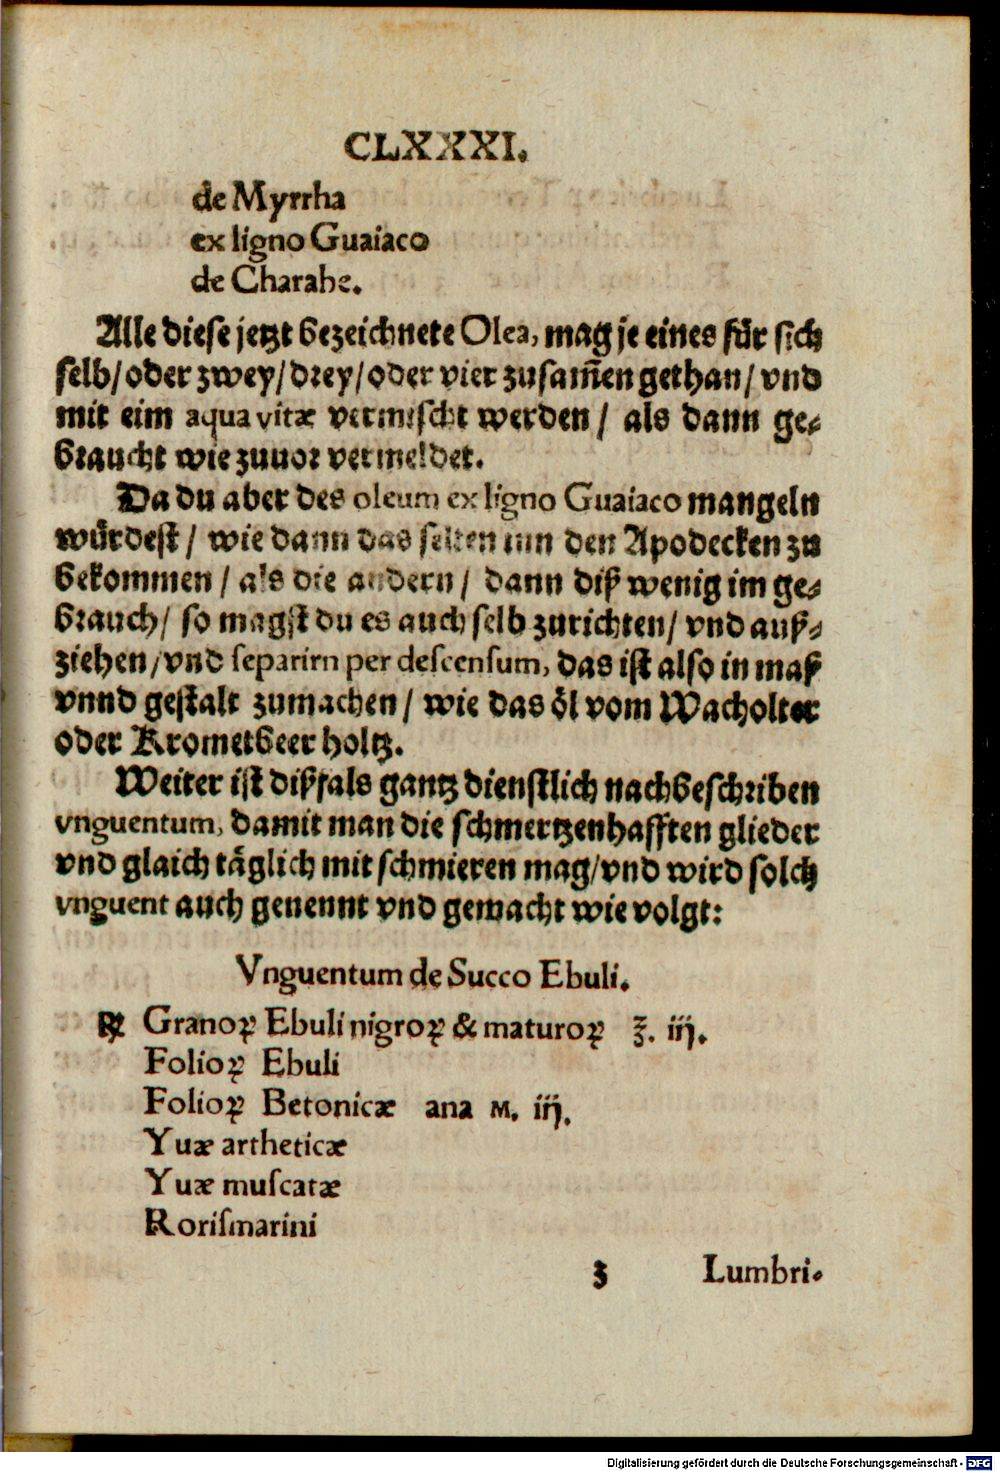 CLXXXI.
de Myrrha
ex ligno Guaiaco
de Charabe.
Alle dieſe jetzt bezeichnete Olea, mag je eines fuͤr ſich
ſelb/ oder zwey/ drey/ oder vier zuſam̃en gethan/ vnd
mit eim aqua vitæ vermiſcht werden/ als dann ge⸗
braucht wie zuuor vermeldet.
Da du aber des oleum ex ligno Guaiaco mangeln
wuͤrdeſt/ wie dann das ſelten inn den Apodecken zu
bekommen/ als die andern/ dann diß wenig im ge⸗
brauch/ ſo magſt du es auch ſelb zurichten/ vnd auß⸗
ziehen/ vnd ſeparirn per deſcenſum, das iſt alſo in maß
vnnd geſtalt zumachen/ wie das oͤl vom Wacholter
oder Krometbeer holtz.
Weiter iſt dißfals gantz dienſtlich nachbeſchriben
vnguentum, damit man die ſchmertzenhafften glieder
vnd glaich taͤglich mit ſchmieren mag/ vnd wird ſolch
vnguent auch genennt vnd gemacht wie volgt:
Vnguentum de Succo Ebuli.
℞ Granoꝝ Ebuli nigroꝝ & maturoꝝ ℥. iij.
Folioꝝ Ebuli
Folioꝝ Betonicæ ana M. iij.
Yuæ artheticæ
Yuæ muſcatæ
Roriſmarini
z Lumbri⸗
Digitalisierung gefördert durch die Deutsche Forschungsgemeinschaft - DFG